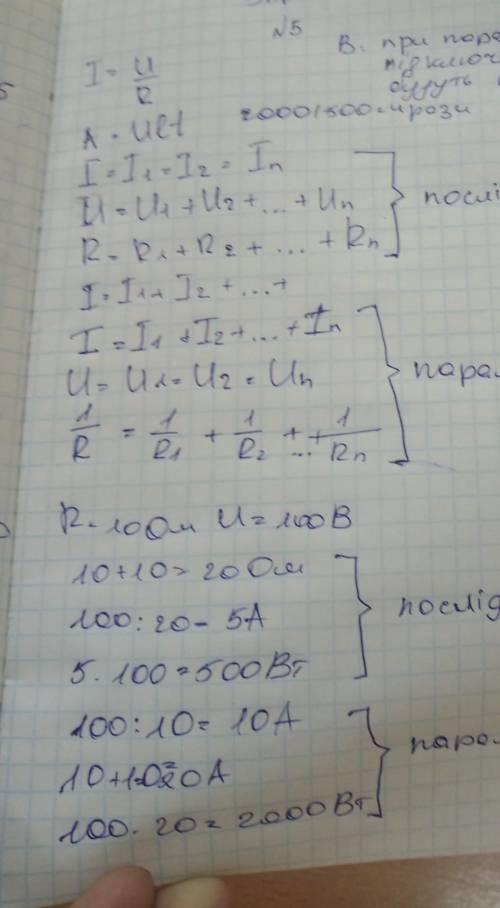 №5
В. при пара
підключ
будуть
I = U/R
A = UIt 2000/500 = рази
I = I1 = I2 = In
U = U1 + U2 + ... + Un
R = R1 + R2 + ... + Rn
послі
I = I1 + I2 + ... +
I = I1 + I2 + ... + In
U = U1 = U2 = Un
парал
1/R = 1/R1 + 1/R2 + ... + 1/Rn
R = 10 Ом U = 100 В
10 + 10 = 20 Ом
100 : 20 = 5А
послід
5 · 100 = 500 Вт
100 : 10 = 10 А
парал
10 + 10 = 20 А
100 · 20 = 2000 Вт